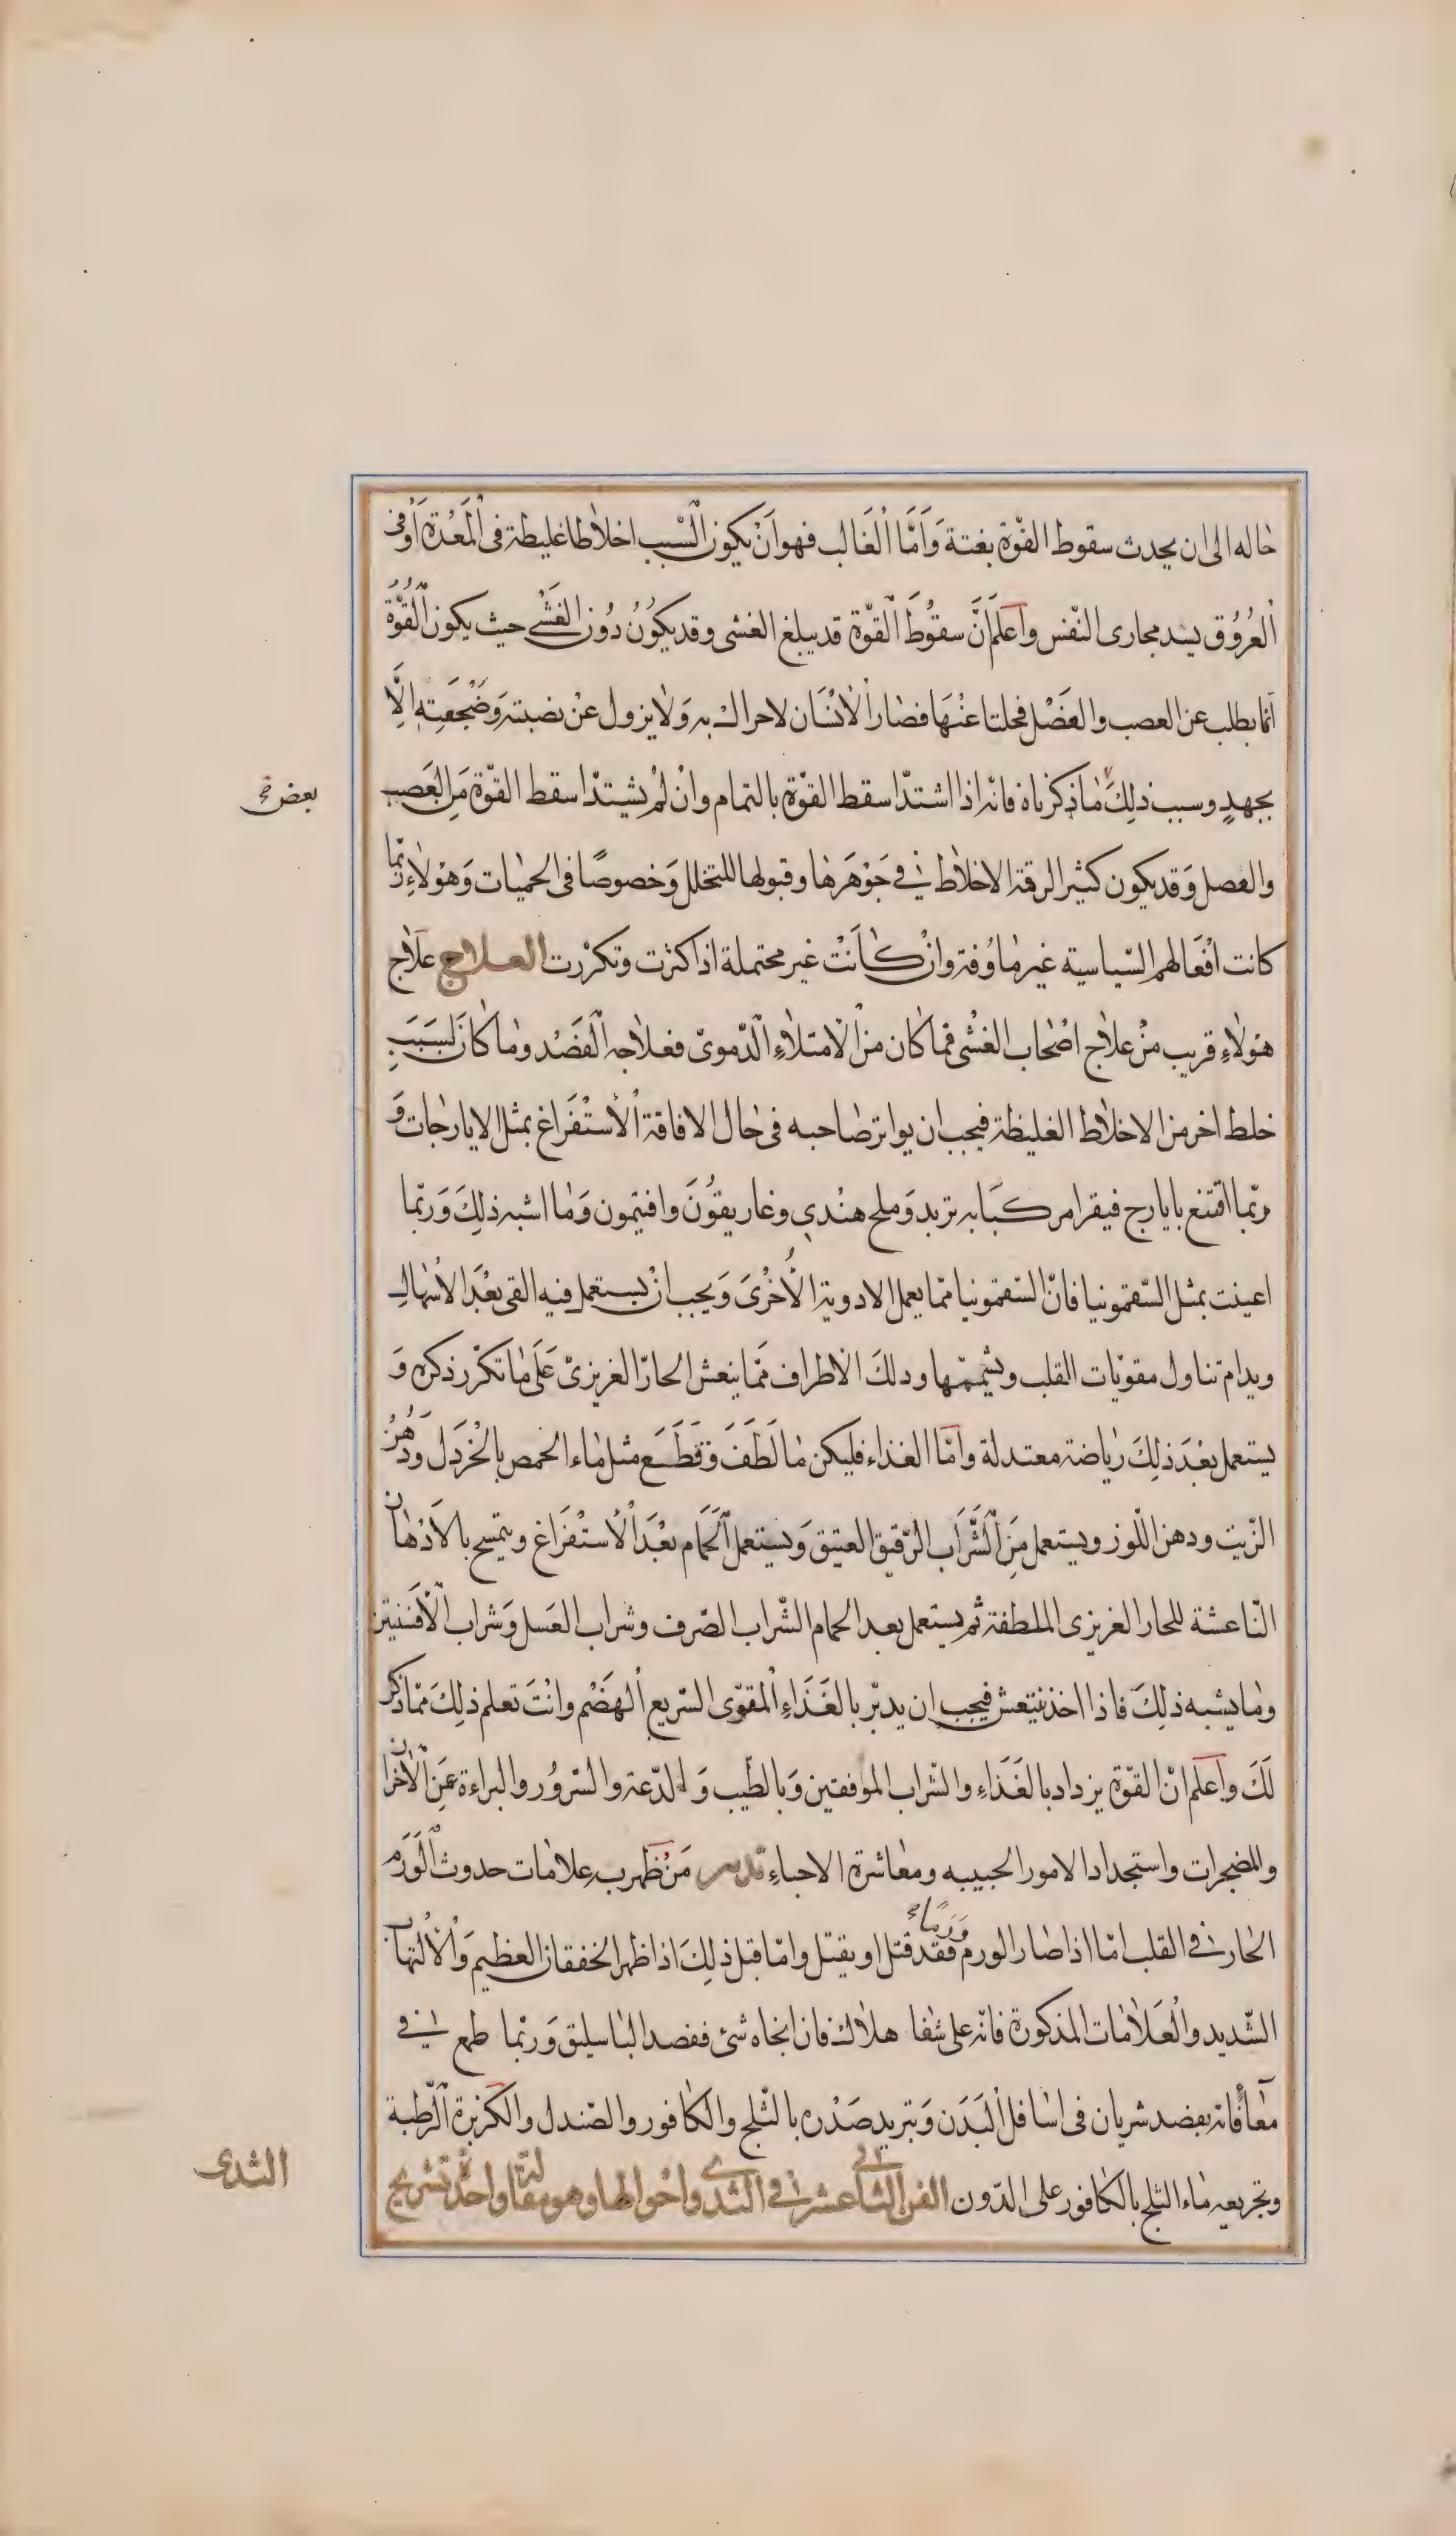 حاله الى ان يحدث سقوط القوّة بغتة وَاَمَّا الْغَالب فهو اَنْ يكون السّبب اخلاطا غليظة فى الْمَعْدة اَوْ فى
الْعُرُوق يسد مجارى النّفس وَاعلَم اَنَّ سقوُطَ الْقوّة قد يبلغ الغشى وقد يكوُنُ دُون الغَشْى حيث يكون الْقُوَّةُ
انّما بطلب عن العصب والعَضَل فحلتا عنْهَا فصار الْانْسَان لا حراك به وَلا يزول عَنْ نصبته وَضَجْعَتِهِ الَّا
بجهدٍ وسبب ذلِكَ مَا ذكرناه فانه اذا اشتدّ اسقط القوّة بالتمام وانْ لَمْ يشتدّ اسقط القوّة مَن الْعَصب
بعض
والعصل وَقد يكون كثير الرقة الاخلاط فى جَوْهَرهَا وقبولها للتخلل وَخصوصًا فى الحميات وَهؤلاءِ ربّما
كانت اَفْعَالهم السّياسية غير مَاؤفة وانْ كَانَتْ غير محتملة اذا كثرت وتكرّرت العلاج علاج
هؤلاءِ قريب منْ علاج اصْحاب الغشْى فما كان من الامتلاءِ الدّموىّ فعلاجه الْفَصْد وما كانَ لسَبَبِ
خلط اخر من الاخلاط الغليظة فيجب ان يواتر صاحبه فى حال الافاقة الْاسْتفَراغ بمثل الايارجات وَ
ربّما اقتنع بايارج فيقرا مركبَا به تربد وَملح هنْدى وغاريقوُنَ وافتيمون وَما اشبه ذلِكَ وَربّما
اعينت بمثل السّقمونيا فانّ السّقمونيا ممّا يعمل الادوية الْاُخْرىَ وَيجب انْ يستعمل فيه القى بعْدَ الْاسْهال
ويدام تناول مقويّات القلب وتشميمها ودلكَ الاطراف مَمّا ينعش الحارّ الغريزىّ عَلَى مَا تكرّر ذكره وَ
يستعمل بعْدَ ذلِكَ رياضة معتدلة وامّا الغذاء فليكن مَا لَطَفَ وَقَطَعَ مثل مَاء الحمص بالْخَردَل وَدُهْنُ
الزّيت ودهن اللّوز ويستعمل مَن الْشَّرَاب الرّقيق العتيق وَيستعمل الْحَمَّام بعْدَ الْاُسْتفْرَاغ ويتمسح بالْادْهَان
النّاعشة للحار الغريزى الملطفة ثم يستعمل بعد الحمام الشّراب الصّرف وشراب العَسل وَشراب الْافسنتين
ومَا يشبه ذلِكَ فاذا اخذ ينتعش فيجب ان يدبّر بالغَذَاءِ الْمقوّى السّريع الْهَضْم وانْتَ تعلم ذلِكَ ممّا ذكر
لَكَ وَاعلم انّ القوّة يزداد بالغَذَاءِ والشّراب الموافقين وَبالطّيب وَ الدّعة والسّروُر والبراءة عَن الْاحْزان
والمضجرات واستجداد الامور الحبيبه ومعَاشرة الاحباءِ تدبير مَنْ ظهر به علامَات حدوث الْوَرَم
الحار فى القلب امّا اذا صار الورم وَرَمًا فقد قتل او يقتل وامّا قبل ذلِكَ اذا ظهر الخفقان العظيم وَالْالْتهاب
الشّديد والْعَلامَات المذكورة فانّه على شفا هلاك فان انجاه شئ ففصد الباسليق وَربّما طمع فى
معَافَاته بفصد شريان فى اسَافل الْبَدَن وَتبريد صَدْره بالثّلج والكافور والصّندل والكزبرة الْرّطبة
وتجريعه مَاء الثلج بالكافور على الدّون الفن الثانى عشر فى الثدى واحوالها وهو مقالة واحدة تشريح
الثدى